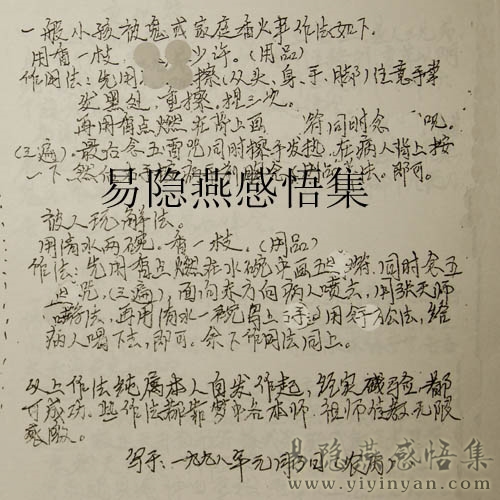 一般小孩被鬼或家庭香火弄作法如下.
用香一枝. 少许。(用品)
作用法:先用 擦(从头、身、手、脚)注意手掌
发黑处.重擦.捏三次。
再用香点燃在背上画 符同时念 呪。
(三遍).最后念五雷咒同时擦手发热.在病人背上按
一下. 即可。
易隐燕感悟集
被人玩解法。
用清水两碗.香一枝。(用品)
作法:先用香点燃在水碗中画五 符.同时念五
咒.(三遍),面向东方向病人喷去.用张天师
法.再用清水一碗 用 法,给
病人喝下去,即可。余下作用法同上。
以上作法纯属本人自发作起,经实 验.都
可成功.些作法都靠 各本师.祖师传教无限
感激。
写于:一九九八年元月 日
易隐燕感悟集
www.yiyinyan.com